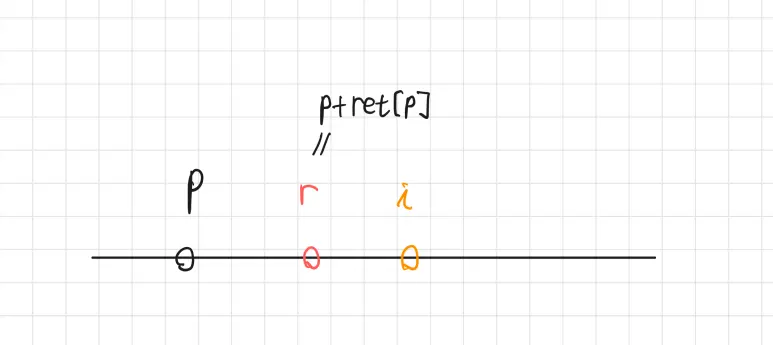 p+ret[p]
//
p r i